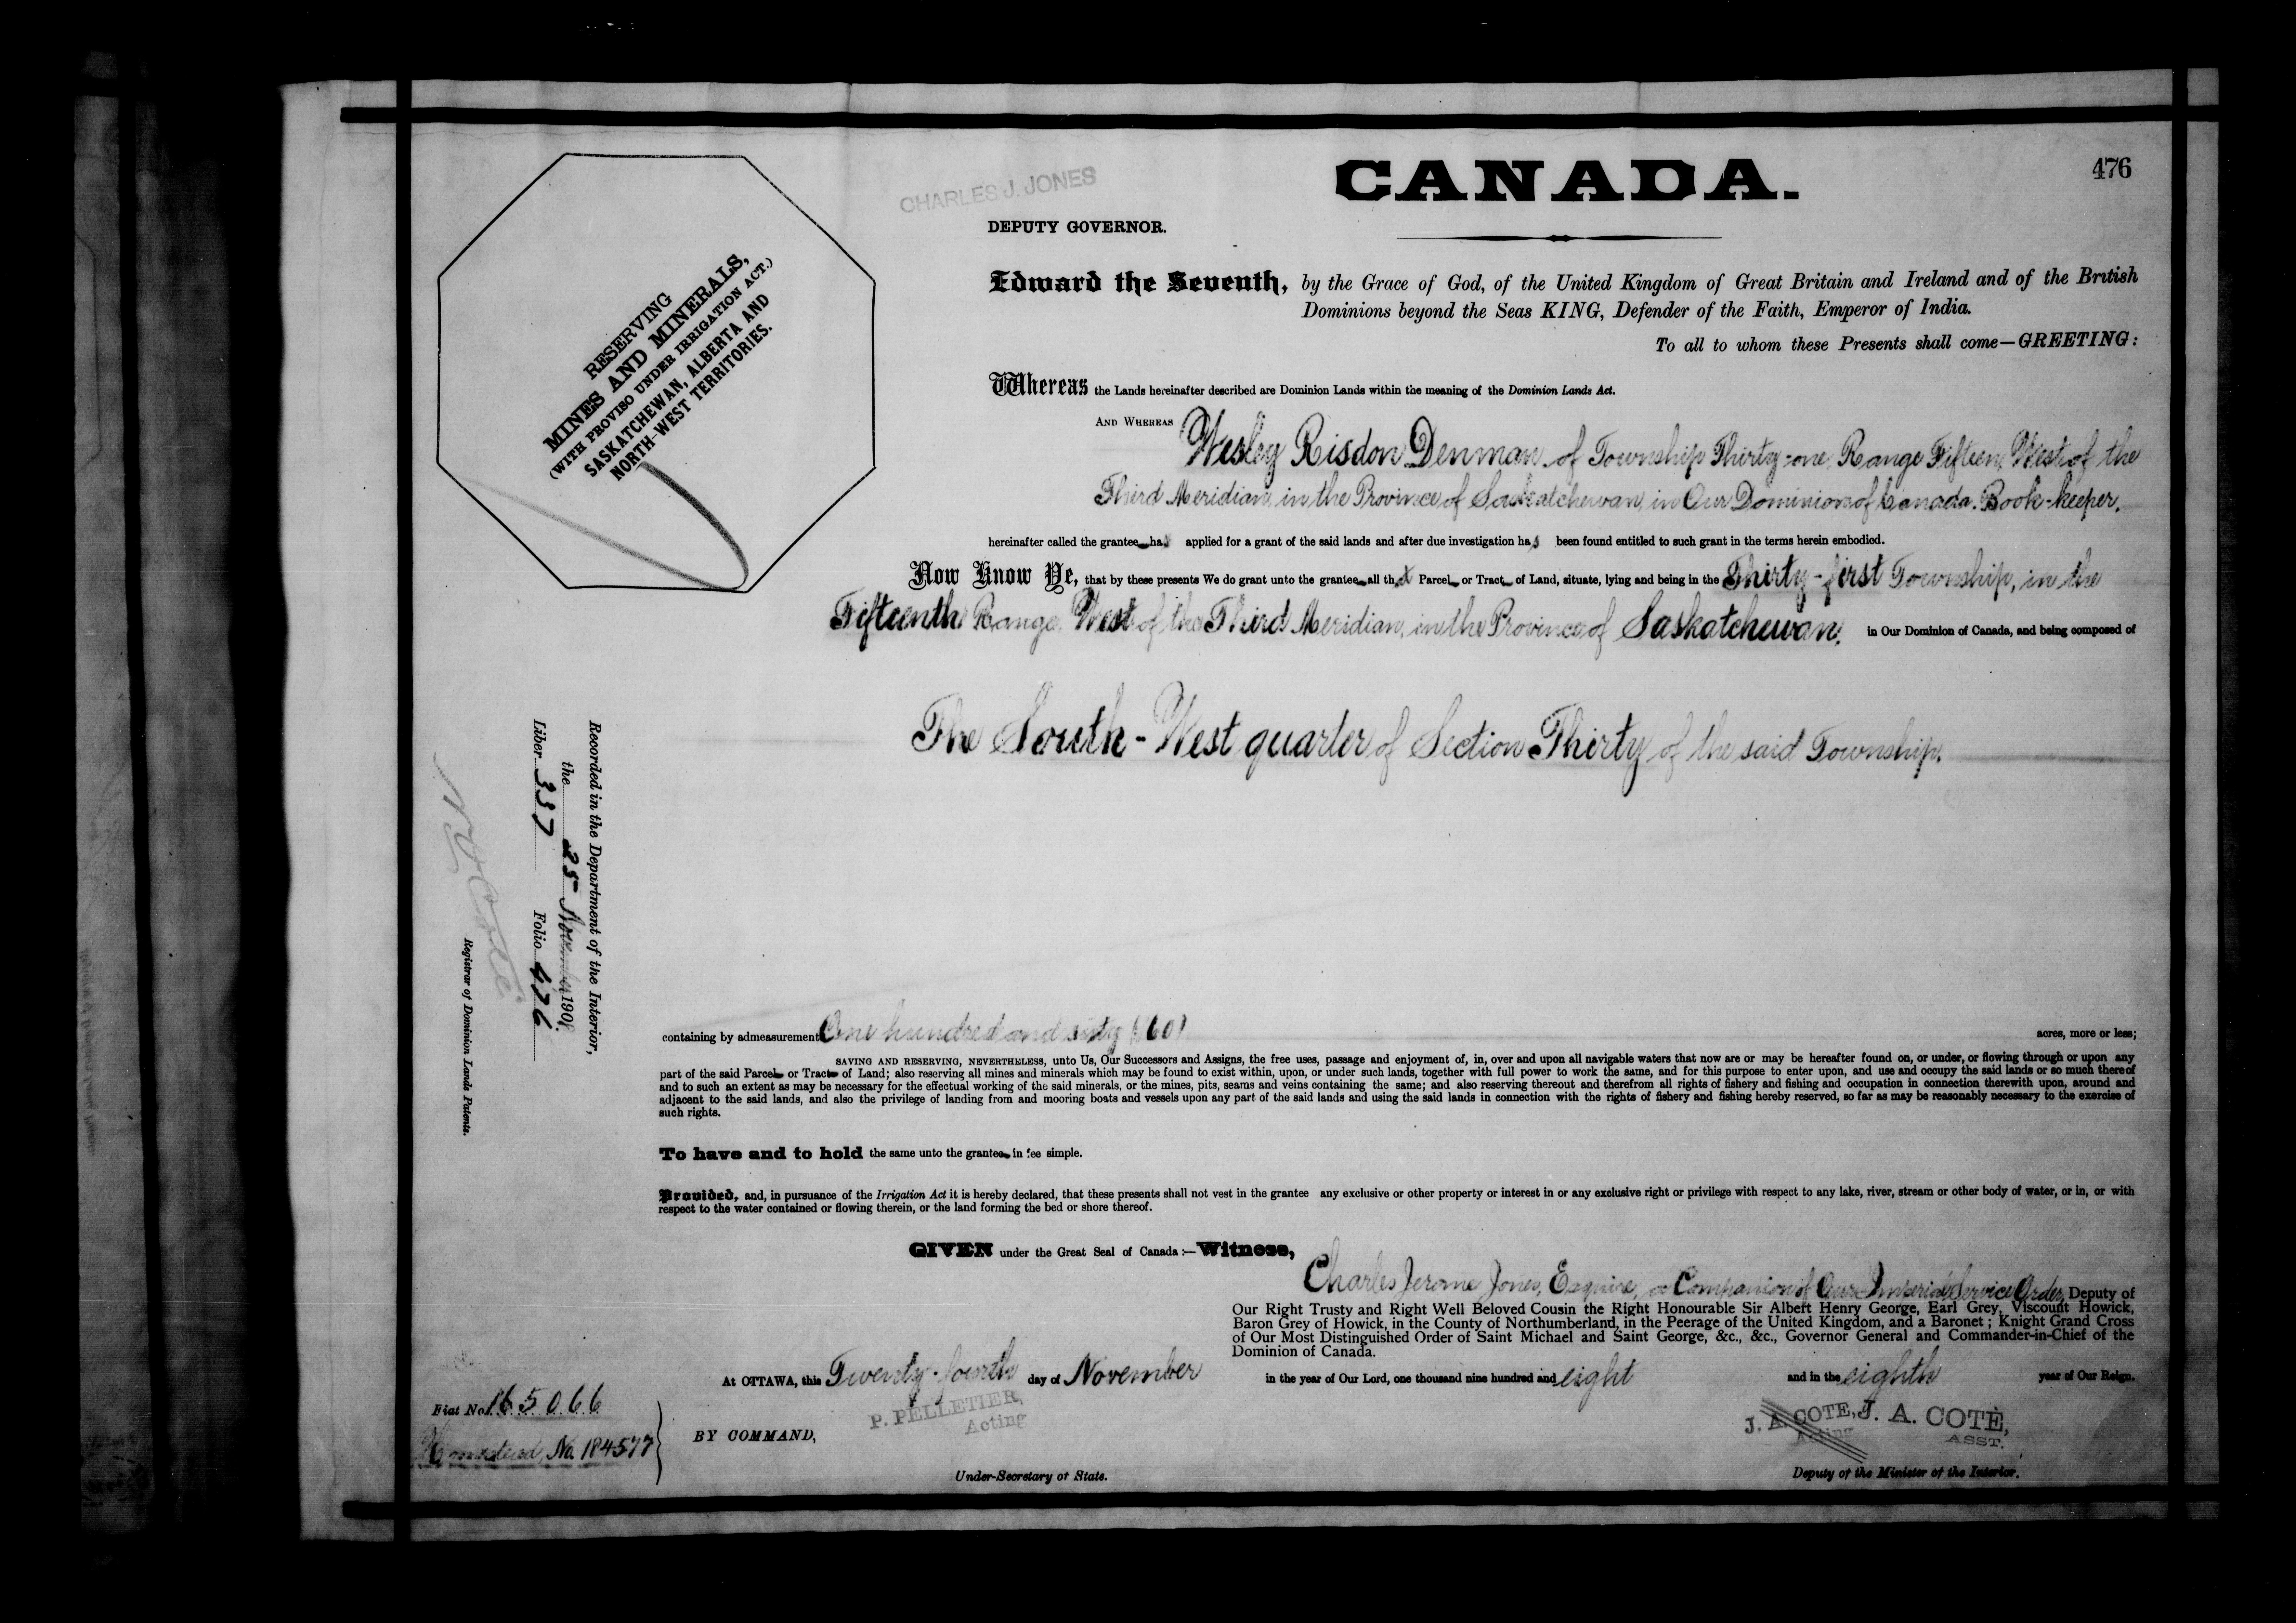 476
CANADA.
CHARLES J. JONES
DEPUTY GOVERNOR.
RESERVING
MINES AND MINERALS,
(WITH PROVISO UNDER IRRIGATION ACT.)
SASKATCHEWAN, ALBERTA AND
NORTH-WEST TERRITORIES.
Edward the Seventh, by the Grace of God, of the United Kingdom of Great Britain and Ireland and of the British
Dominions beyond the Seas KING, Defender of the Faith, Emperor of India.
To all to whom these Presents shall come—GREETING:
Whereas the Lands hereinafter described are Dominion Lands within the meaning of the Dominion Lands Act.
AND WHEREAS Wesley Risdon Denman of Township Thirty-one, Range Fifteen, West of the
Third Meridian, in the Province of Saskatchewan, in Our Dominion of Canada. Book-keeper,
hereinafter called the grantee has applied for a grant of the said lands and after due investigation has been found entitled to such grant in the terms herein embodied.
Now Know Ye, that by these presents We do grant unto the grantee all that Parcel or Tract of Land, situate, lying and being in the Thirty-first Township, in the
Fifteenth Range, West of the Third Meridian, in the Province of Saskatchewan, in Our Dominion of Canada, and being composed of
The South-West quarter of Section Thirty of the said Township.
containing by admeasurement One hundred and sixty (160) acres, more or less;
SAVING AND RESERVING, NEVERTHELESS, unto Us, Our Successors and Assigns, the free uses, passage and enjoyment of, in, over and upon all navigable waters that now are or may be hereafter found on, or under, or flowing through or upon any
part of the said Parcel or Tract of Land; also reserving all mines and minerals which may be found to exist within, upon, or under such lands, together with full power to work the same, and for this purpose to enter upon, and use and occupy the said lands or so much thereof
and to such an extent as may be necessary for the effectual working of the said minerals, or the mines, pits, seams and veins containing the same; and also reserving thereout and therefrom all rights of fishery and fishing and occupation in connection therewith upon, around and
adjacent to the said lands, and also the privilege of landing from and mooring boats and vessels upon any part of the said lands and using the said lands in connection with the rights of fishery and fishing hereby reserved, so far as may be reasonably necessary to the exercise of
such rights.
To have and to hold the same unto the grantee in fee simple.
Provided, and, in pursuance of the Irrigation Act it is hereby declared, that these presents shall not vest in the grantee any exclusive or other property or interest in or any exclusive right or privilege with respect to any lake, river, stream or other body of water, or in, or with
respect to the water contained or flowing therein, or the land forming the bed or shore thereof.
GIVEN under the Great Seal of Canada:—Witness,
Charles Jerome Jones, Esquire, a Companion of Our Imperial Service Order, Deputy of
Our Right Trusty and Right Well Beloved Cousin the Right Honourable Sir Albert Henry George, Earl Grey, Viscount Howick,
Baron Grey of Howick, in the County of Northumberland, in the Peerage of the United Kingdom, and a Baronet; Knight Grand Cross
of Our Most Distinguished Order of Saint Michael and Saint George, &c., &c., Governor General and Commander-in-Chief of the
Dominion of Canada.
At OTTAWA, this Twenty-fourth day of November in the year of Our Lord, one thousand nine hundred and eight and in the eighth year of Our Reign.
P. PELLETIER,
Acting
BY COMMAND,
Under-Secretary of State.
J. A. COTE, J. A. COTÈ,
Acting ASST.
Deputy of the Minister of the Interior.
Fiat No. 165066
Homestead, No. 184577
Recorded in the Department of the Interior,
the 25 November 1908.
Liber 337 Folio 476
N O Coté
Registrar of Dominion Lands Patents.